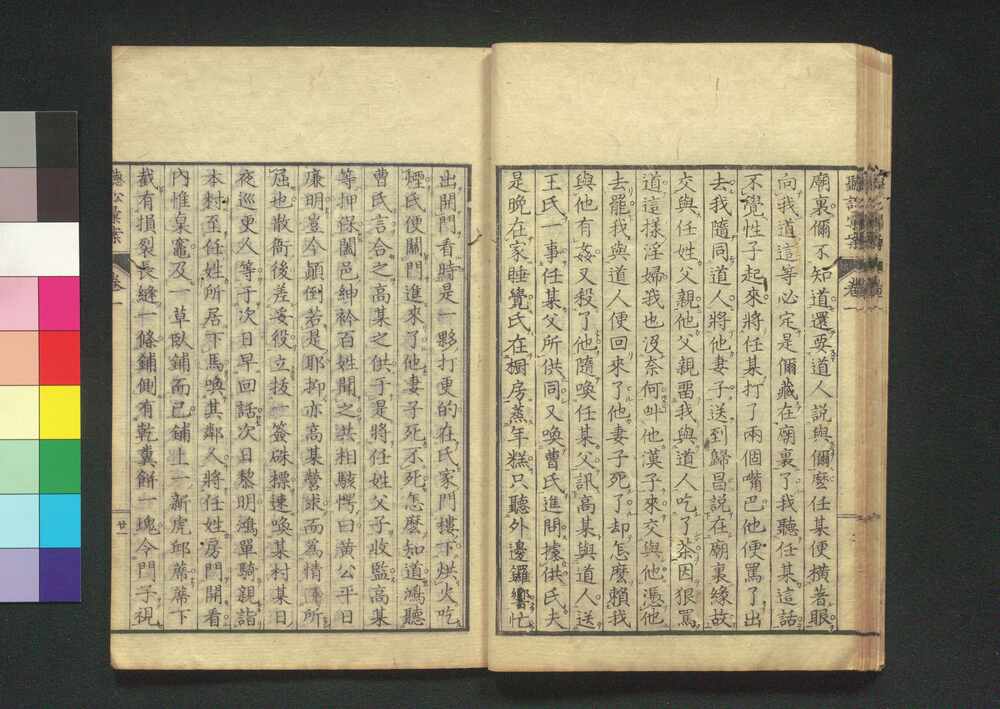 廟裏儞不知道還要道人説與儞麽任某便橫着眼
向我道這等必定是儞藏在廟裏了我聽任某這話
不覺性子起來將任某打了兩個嘴巴他便罵了出
去我隨同道人將他妻子送到歸昌説在廟裏緣故
交與任姓父親他父親畱我與道人吃了茶因狠罵
道這樣淫婦我也沒奈何叫他漢子來交與他憑他
去罷我與道人便回來了他妻子死了却怎麽賴我
與他有姦又殺了他隨喚任某父訊高某與道人送
王氏一事任某父所供同又喚曹氏進問據供氏夫
是晩在家睡覺氏在厨房蒸年糕只聽外邊鑼響忙
出開門看時是一夥打更的在氏家門樓下烘火吃
煙氏便關門進來了他妻子死不死怎麽知道鴻聽
曹氏言合之高某之供于是將任姓父子收監高某
等押保闔邑紳衿百姓聞之共相駭愕曰黃公平日
廉明豈今顚倒若是耶抑亦高某營求而爲情面所
屈也散衙後差妥役立拔一簽硃標速喚某村某日
夜巡更人等于次日早回話次日黎明鴻單騎親詣
本村至任姓所居下馬喚其鄰人將任姓房門開看
內惟桌竈及一草臥鋪而已鋪上一新虎邱蓆蓆下
截有損裂長縫一條鋪側有乾糞餅一塊令門子視
聽訟彙案 卷一
廿一